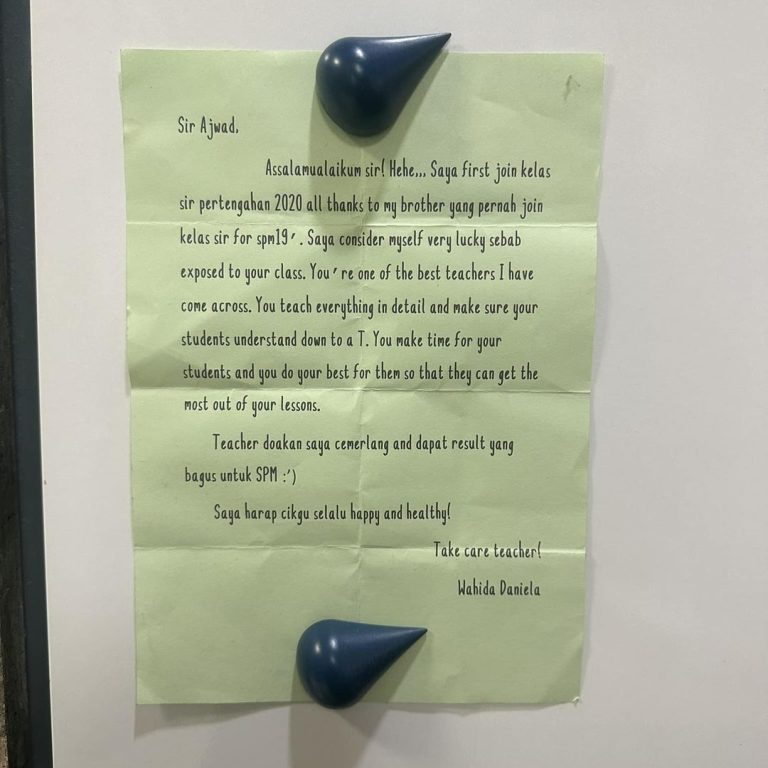 Sir Ajwad,
Assalamualaikum sir! Hehe,,, Saya first join kelas
sir pertengahan 2020 all thanks to my brother yang pernah join
kelas sir for spm19'. Saya consider myself very lucky sebab
exposed to your class. You're one of the best teachers I have
come across. You teach everything in detail and make sure your
students understand down to a T. You make time for your
students and you do your best for them so that they can get the
most out of your lessons.
Teacher doakan saya cemerlang and dapat result yang
bagus untuk SPM :')
Saya harap cikgu selalu happy and healthy!
Take care teacher!
Wahida Daniela